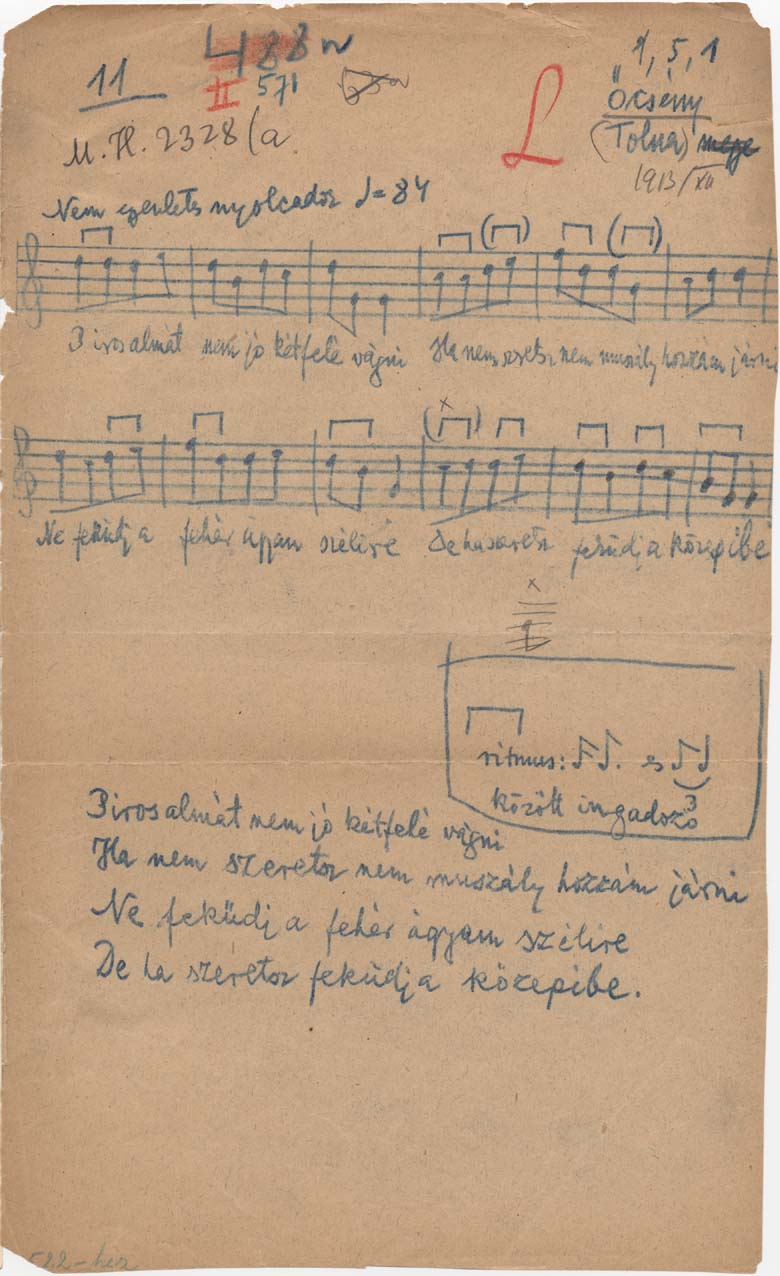 11
488
II 571
M. H. 2328/a
L
1, 5, 1
Őcsény
(Tolna) mege
1913/XII
Nem egyenletes nyolcados ♩=84
Piros almát nem jó kétfelé vágni Ha nem szeretsz nem muszály hozzám járni
Ne feküdj a fehér ágyam szélire De ha szeretsz feküdj a közepibe
ritmus: és
3
között ingadozó
Piros almát nem jó kétfelé vágni
Ha nem szeretsz nem muszály hozzám járni
Ne feküdj a fehér ágyam szélire
De ha szeretsz feküdj a közepibe.